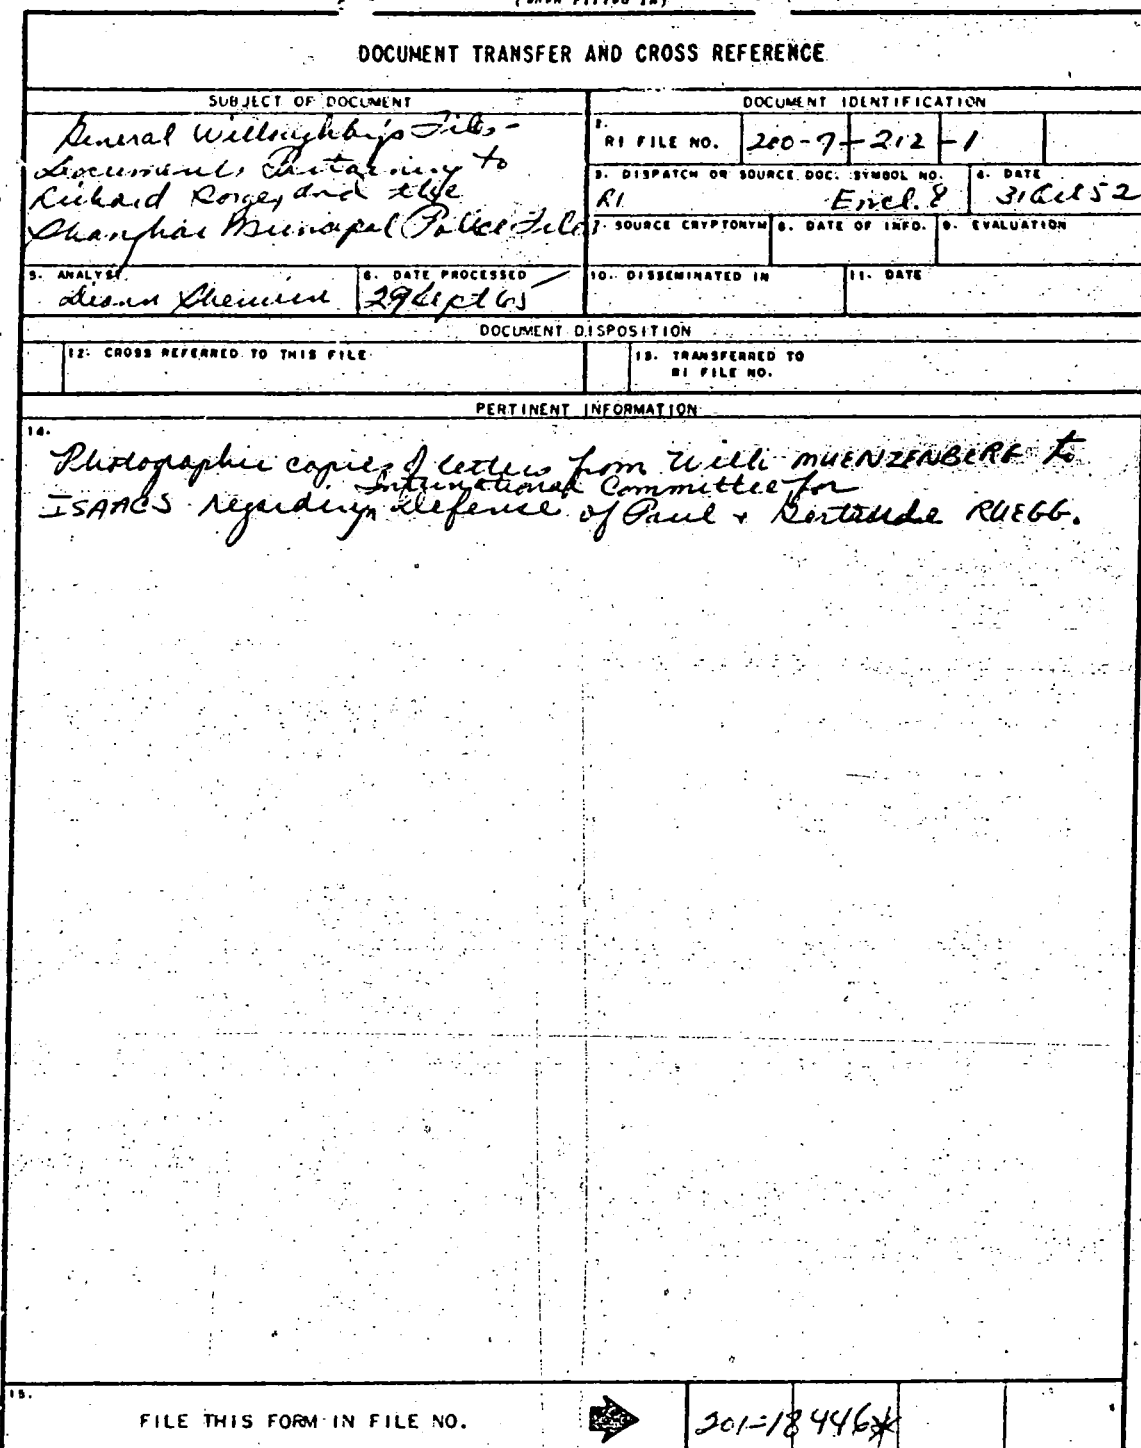 (WHEN FILLED IN)
DOCUMENT TRANSFER AND CROSS REFERENCE
SUBJECT OF DOCUMENT
General Willoughby's Files -
Documents Pertaining to
Richard Sorge, and the
Shanghai Municipal Police Files
DOCUMENT IDENTIFICATION
2.
RI FILE NO.
200-7-212-1
3. DISPATCH OR SOURCE DOC. SYMBOL NO.
RI Encl. 8
4. DATE
31 Oct 52
7. SOURCE CRYPTONYM
8. DATE OF INFO.
9. EVALUATION
5. ANALYST
6. DATE PROCESSED
29 Sept 65
10. DISSEMINATED IN
11. DATE
DOCUMENT DISPOSITION
12. CROSS REFERRED TO THIS FILE
13. TRANSFERRED TO
RI FILE NO.
PERTINENT INFORMATION
14.
Photographic copies of letters from Willi MUENZENBERG to
International Committee for
ISAACS regarding defense of Paul + Gertrude RUEGG.
15.
FILE THIS FORM IN FILE NO.
201-18446*